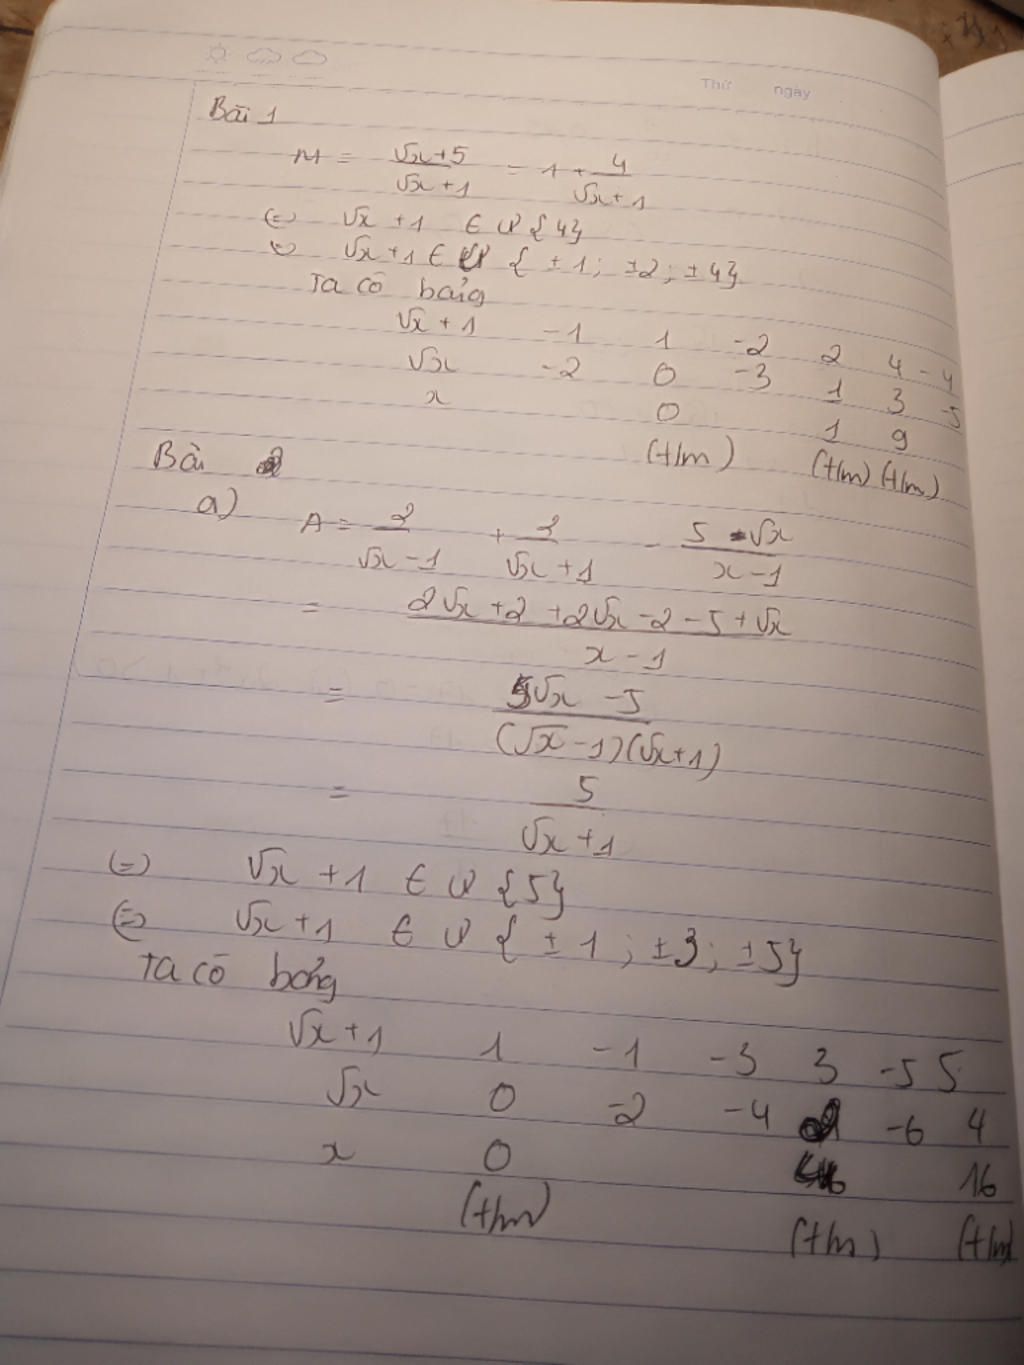 Thứ ngày
Bài 1
M = √x+5/√x+1 = 1 + 4/√x+1
(=) √x +1 ∈ Ư {4}
(=) √x +1 ∈ Ư { ±1; ±2; ±4}
Ta có bảng
√x + 1 -1 1 -2 2 4 -4
√x -2 0 -3 1 3 -5
x 0 1 9
(t/m) (t/m) (t/m)
Bài 2
a) A = 2/√x -1 + 2/√x +1 - 5 -√x/x -1
= 2√x +2 +2√x -2 -5 +√x/x -1
= 5√x -5/(√x -1)(√x+1)
= 5/√x +1
(=) √x +1 ∈ Ư {5}
(=) √x +1 ∈ Ư { ±1 ; ±3 ; ±5}
Ta có bảng
√x +1 1 -1 -3 3 -5 5
√x 0 -2 -4 2 -6 4
x 0 16
(t/m) (t/m) (t/m)